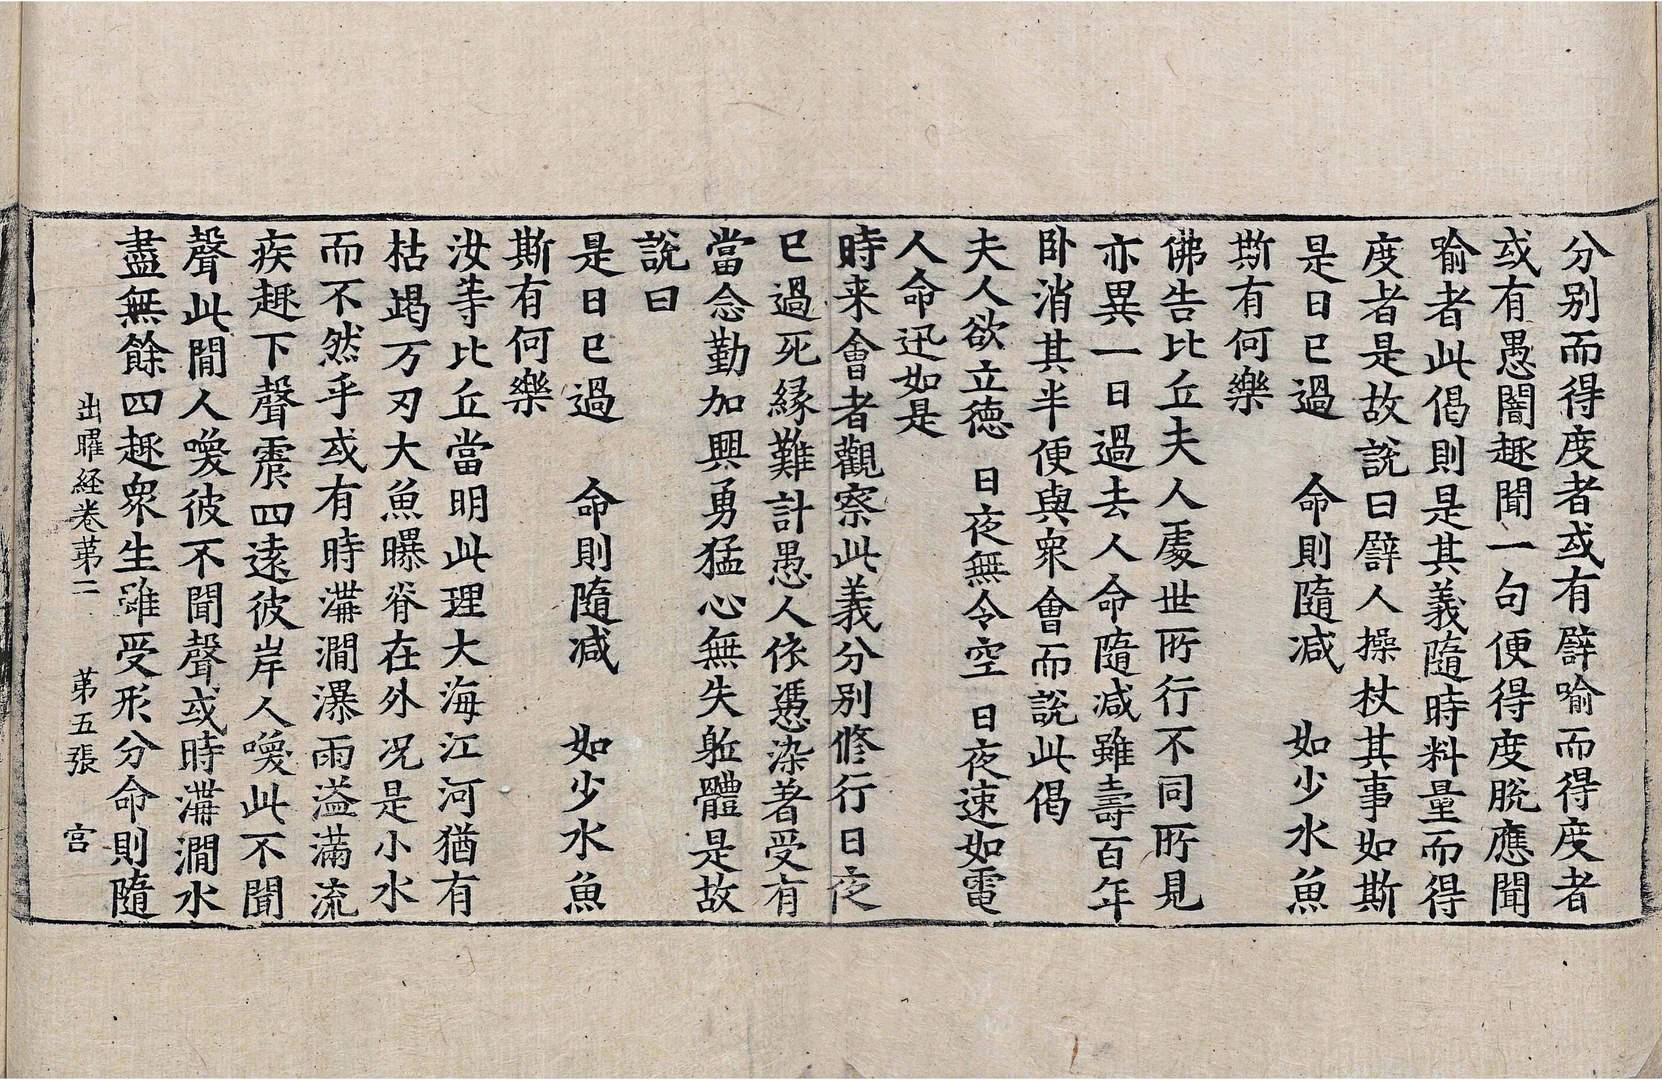 分別而得度者或有譬喻而得度者
或有愚闇趣聞一句便得度脫應聞
喻者此偈則是其義隨時料量而得
度者是故說曰譬人操杖其事如斯
是日已過　命則隨减　如少水魚
斯有何樂
佛告比丘夫人處世所行不同所見
亦異一日過去人命隨减雖壽百年
卧消其半便與衆會而說此偈
夫人欲立德　日夜無令空　日夜速如電
人命迅如是
時来會者觀察此義分別修行日夜
已過死緣難計愚人依憑染著受有
當念勤加興勇猛心無失軀體是故
說曰
是日已過　命則隨减　如少水魚
斯有何樂
汝等比丘當明此理大海江河猶有
枯竭万刃大魚曝脊在外况是小水
而不然乎或有時溝澗瀑雨溢滿流
疾趣下聲震四遠彼岸人喚此不聞
聲此間人喚彼不聞聲或時溝澗水
盡無餘四趣衆生雖受形分命則隨
出曜経卷苐二　苐五張　宫